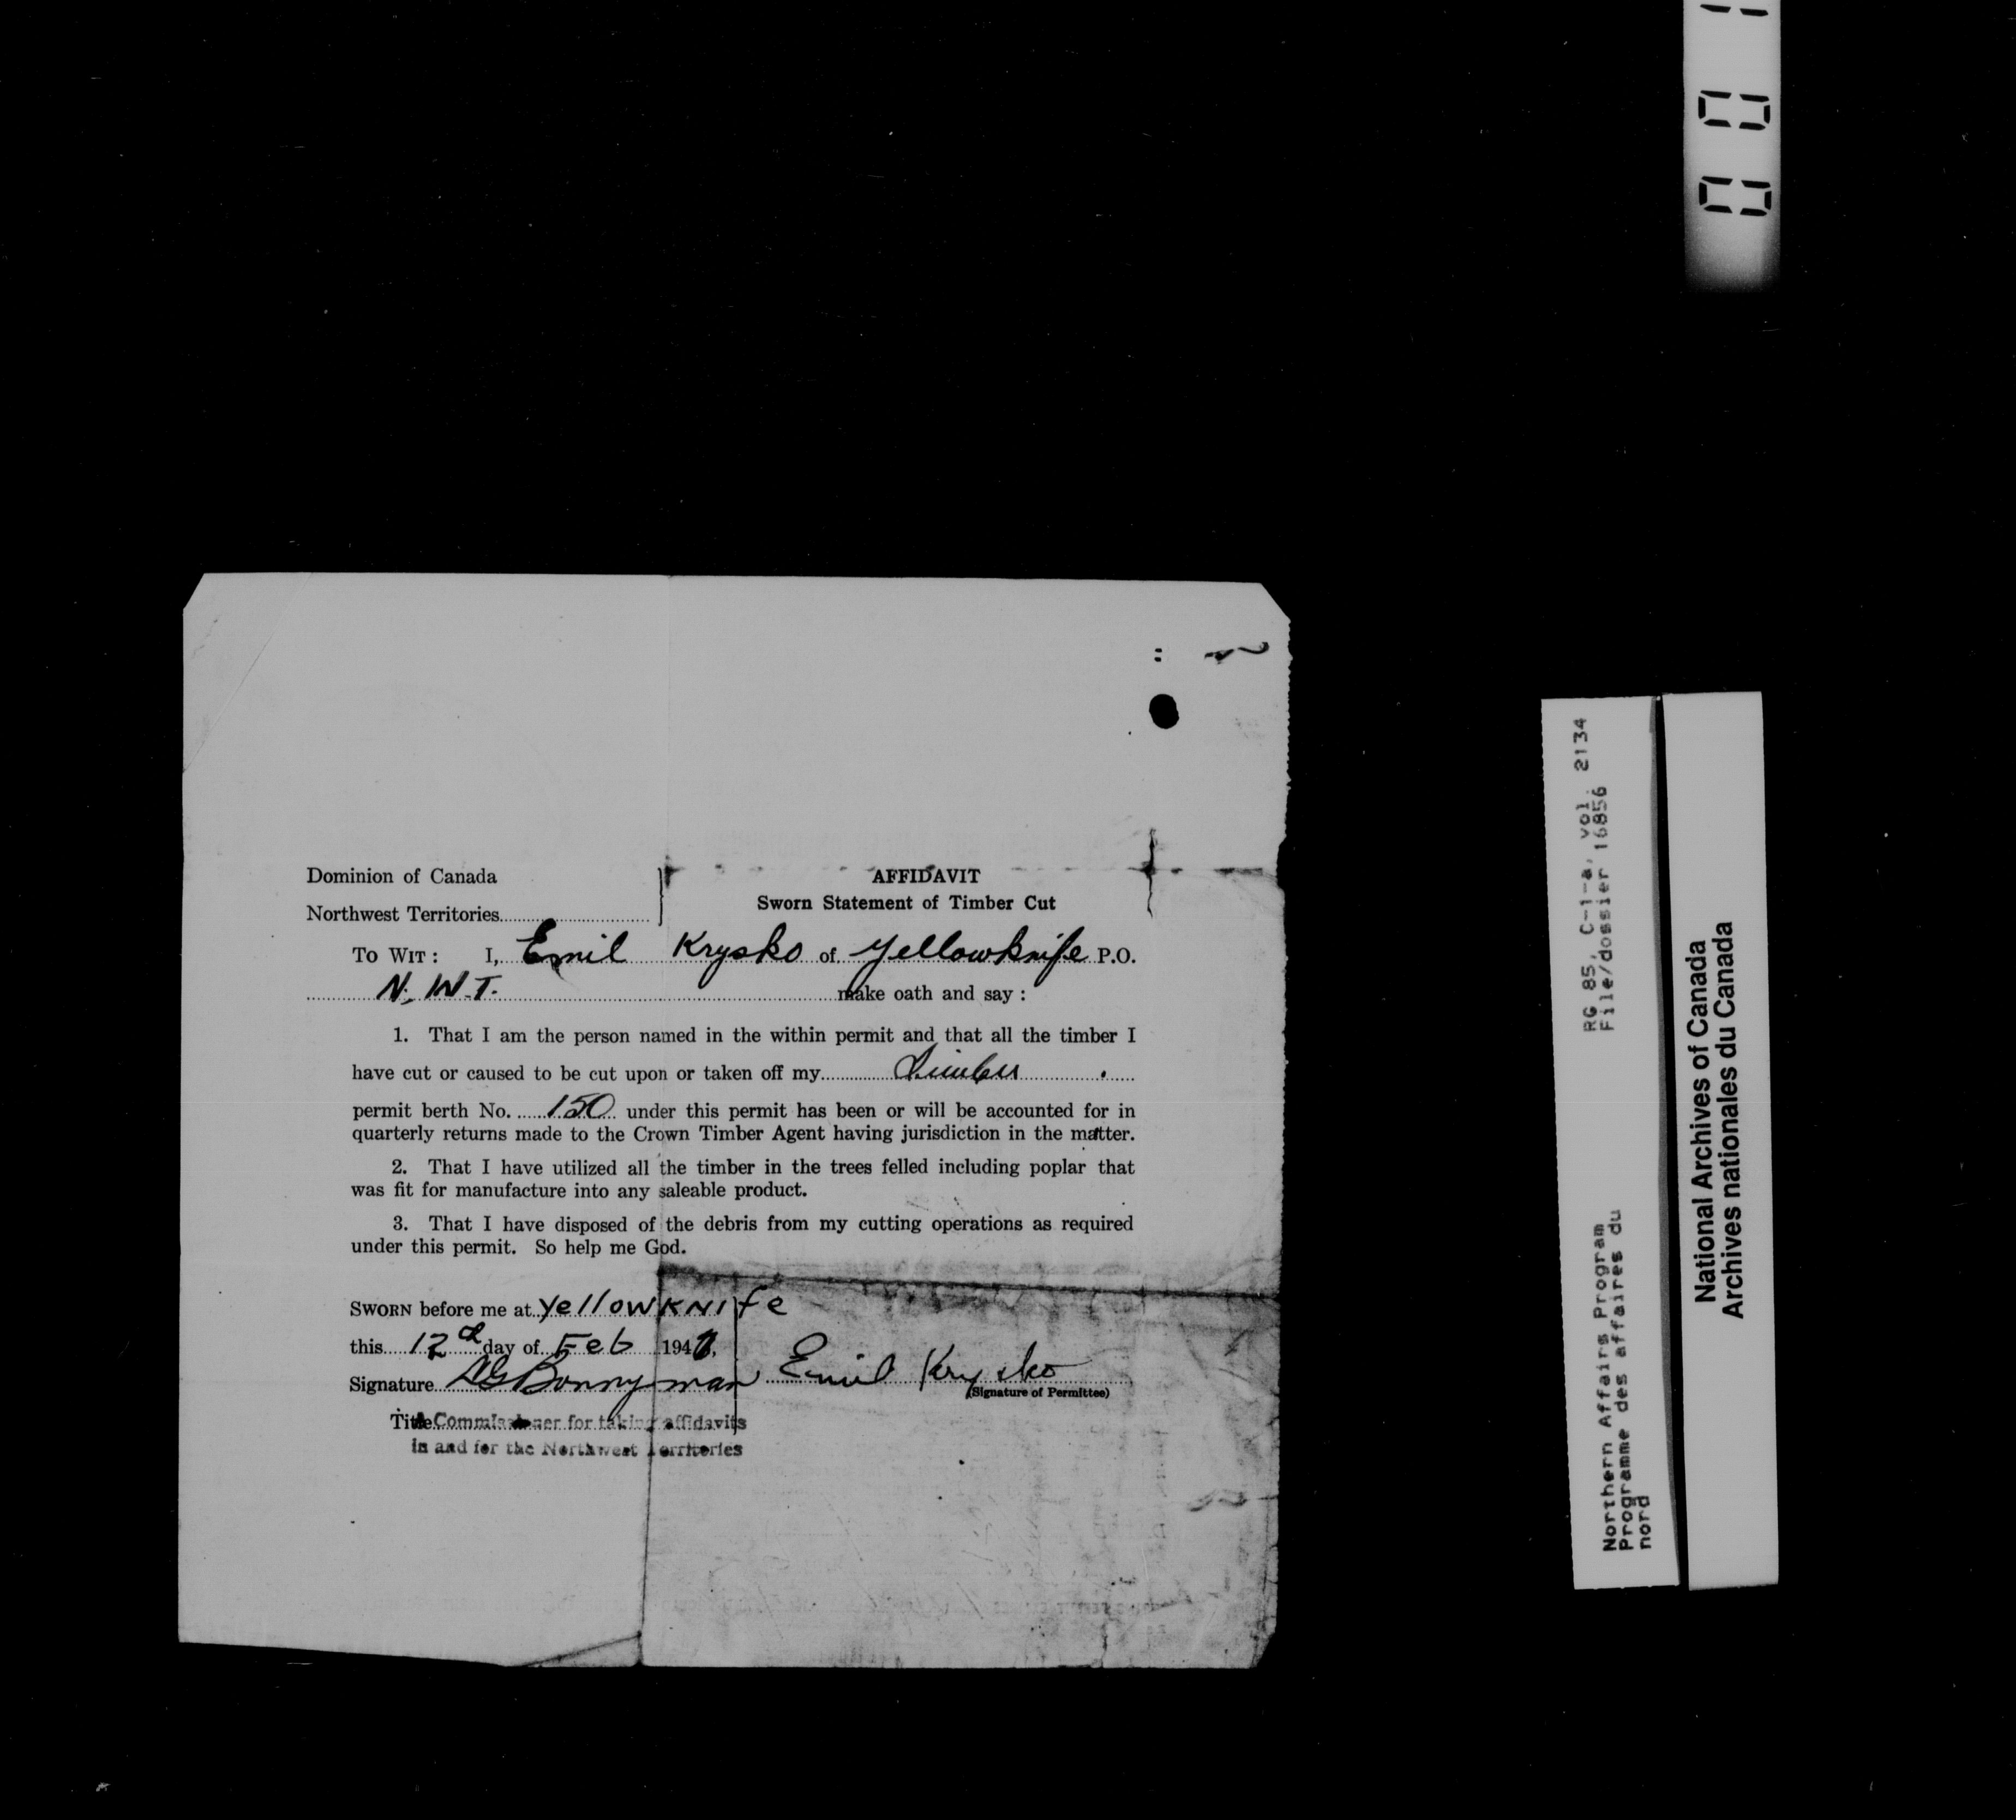 Dominion of Canada
Northwest Territories
AFFIDAVIT
Sworn Statement of Timber Cut
To Wit: I, Emil Krysko of Yellowknife P.O.
N.W.T. make oath and say:
1. That I am the person named in the within permit and that all the timber I
have cut or caused to be cut upon or taken off my Timber
permit berth No. 150 under this permit has been or will be accounted for in
quarterly returns made to the Crown Timber Agent having jurisdiction in the matter.
2. That I have utilized all the timber in the trees felled including poplar that
was fit for manufacture into any saleable product.
3. That I have disposed of the debris from my cutting operations as required
under this permit. So help me God.
Sworn before me at Yellowknife
this 12th day of Feb 194
Signature Bonnyman Emil Krysko
(Signature of Permittee)
Title A Commissioner for taking affidavits
in and for the Northwest Territories
RG 85, C-1-a, vol. 2134
File/dossier 16856
Northern Affairs Program
Programme des affaires du
nord
National Archives of Canada
Archives nationales du Canada